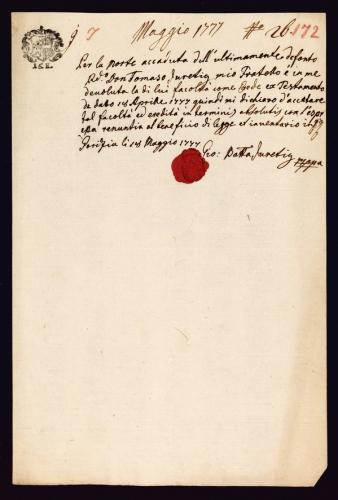 7 Maggio 1777 N 26 172
15 K.
Per la morte accaduta dell'ultimamente defonto
Rdo Don Tomaso Juretig mio Fratello è in me
devoluta la di lui facoltà come Erede ex Testamento
de dato 14 Aprile 1777 quindi mi dichiaro d'accetare
tal facoltà ed eredità in terminis absolutis con espres
renuntia al beneficio di legge et inventario in
Gorizia li 14 Maggio 1777
Gio: Batta Juretig
mppa